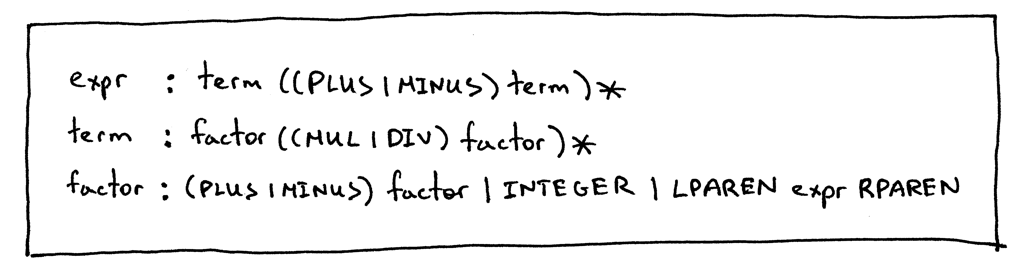 expr : term ((PLUS | MINUS) term)*
term : factor ((MUL | DIV) factor)*
factor : (PLUS | MINUS) factor | INTEGER | LPAREN expr RPAREN